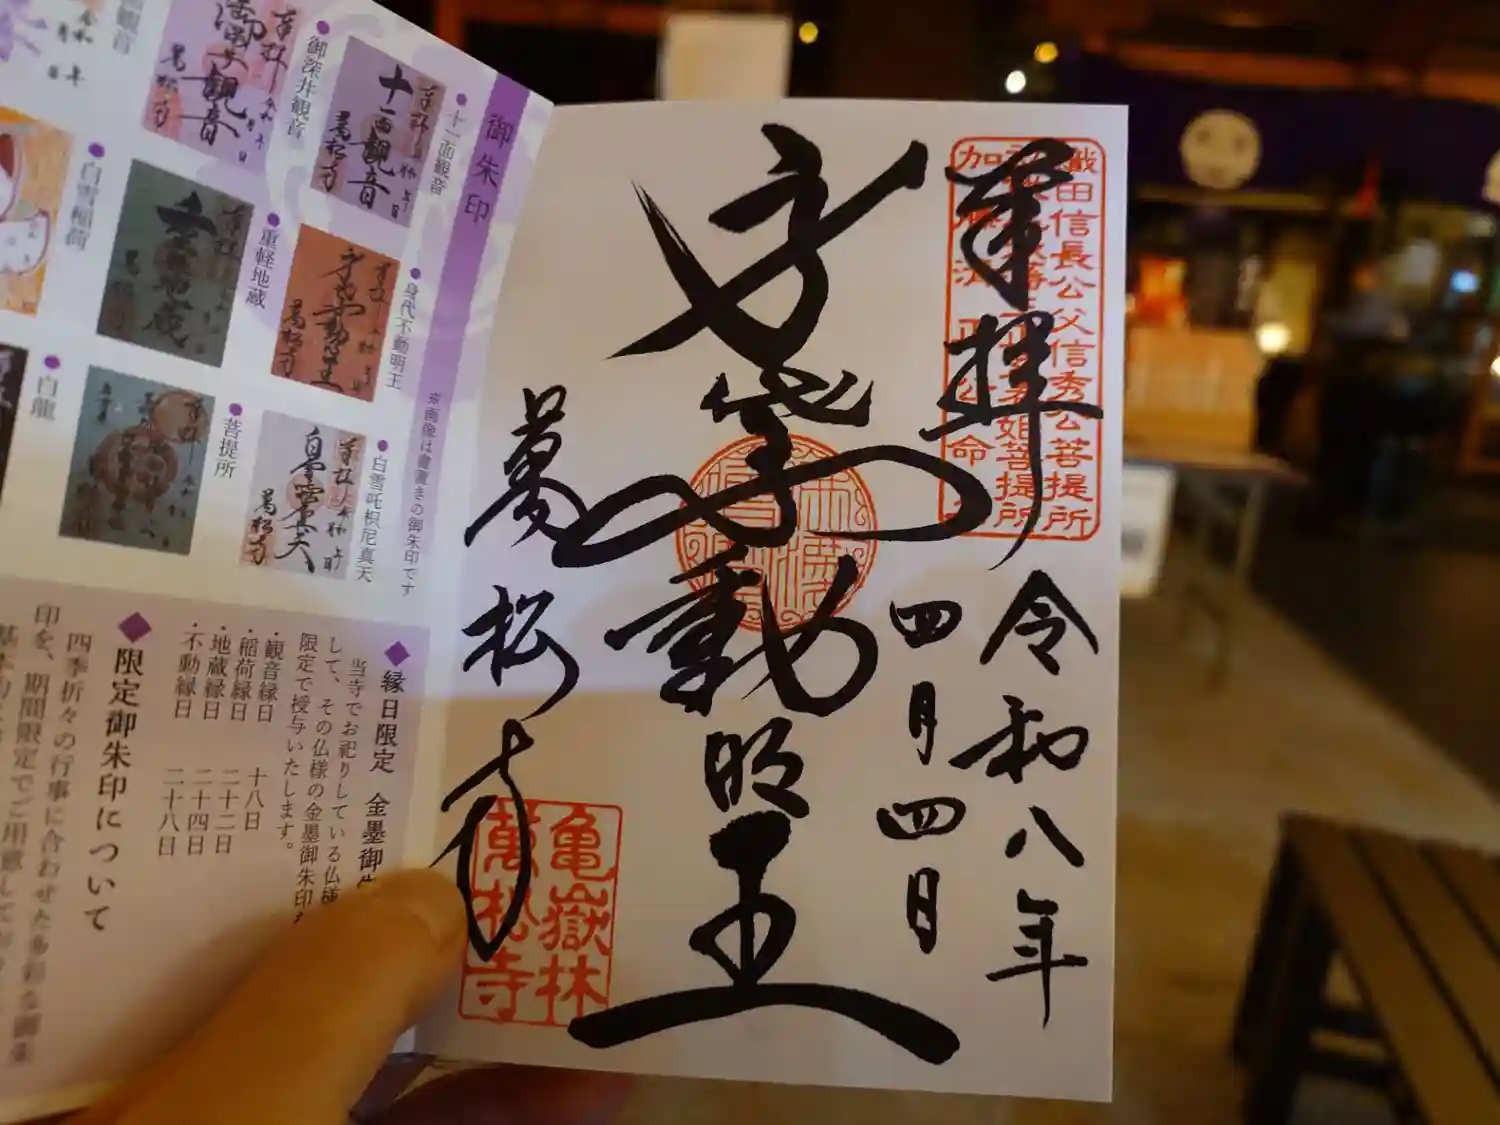 奉拝
令和八年
四月四日
身代不動明王
萬松寺
織田信長公父信秀公菩提所
加藤清正公
命
姫菩提所
亀嶽林
萬松寺
御朱印
十一面観音
御深井観音
身代不動明王
重軽地蔵
白雪稲荷
※画像は書置きの御朱印です
白雪吒枳尼真天
菩提所
白龍
十一面観音
萬松寺
縁日限定 金墨御
当寺でお祀りしている仏様
して、その仏様の金墨御朱印を
限定で授与いたします。
・観音縁日 十八日
・稲荷縁日 二十二日
・地蔵縁日 二十四日
・不動縁日 二十八日
限定御朱印について
四季折々の行事に合わせた多彩な御朱
印を、期間限定でご用意してお